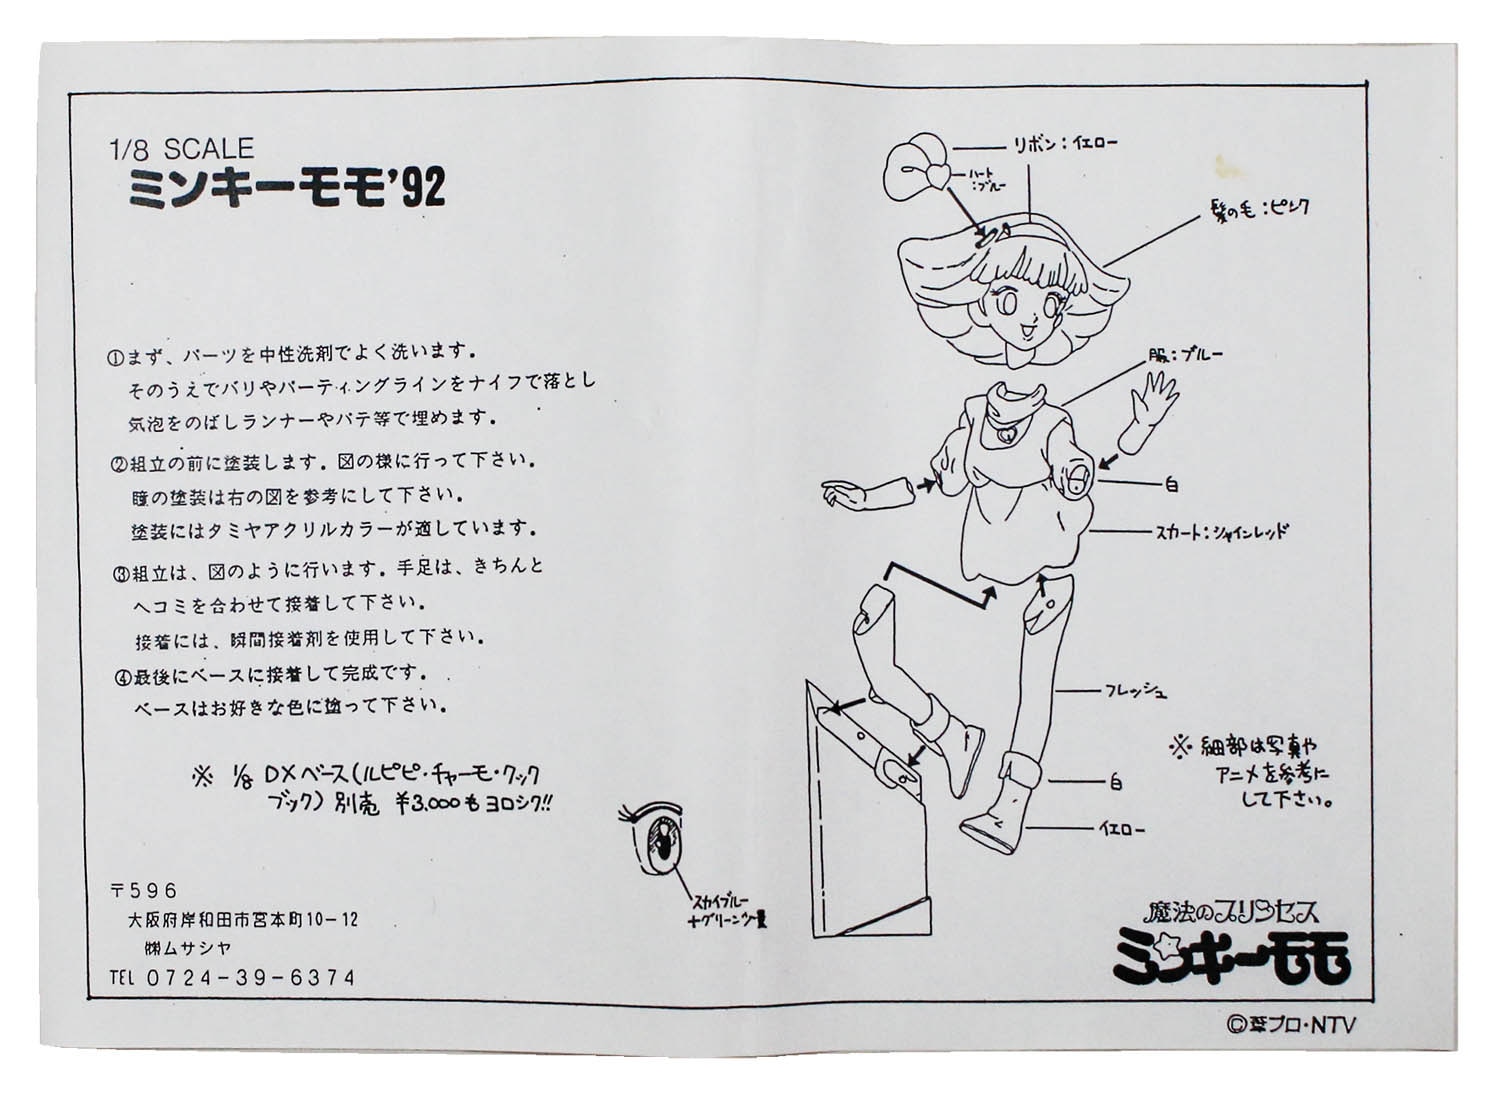 1/8 SCALE
ミンキーモモ'92
①まず、パーツを中性洗剤でよく洗います。
そのうえでバリやパーティングラインをナイフで落とし
気泡をのばしランナーやパテ等で埋めます。
②組立の前に塗装します。図の様に行って下さい。
瞳の塗装は右の図を参考にして下さい。
塗装にはタミヤアクリルカラーが適しています。
③組立は、図のように行います。手足は、きちんと
ヘコミを合わせて接着して下さい。
接着には、瞬間接着剤を使用して下さい。
④最後にベースに接着して完成です。
ベースはお好きな色に塗って下さい。
※ 1/8 DXベース(ルピピ・チャーモ・クック
ブック)別売 ¥3,000もヨロシク!!
〒596
大阪府岸和田市宮本町10-12
㈱ムサシヤ
TEL 0724-39-6374
スカイブルー
+グリーン少量
リボン:イエロー
ハート
:ブルー
髪の毛:ピンク
服:ブルー
白
スカート:シャインレッド
フレッシュ
白
イエロー
※ 細部は写真や
アニメを参考に
して下さい。
魔法のプリンセス
ミンキーモモ
©葦プロ・NTV